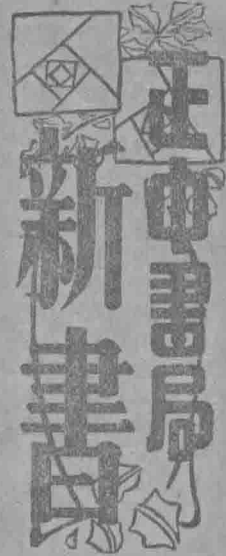 正中書局
新書